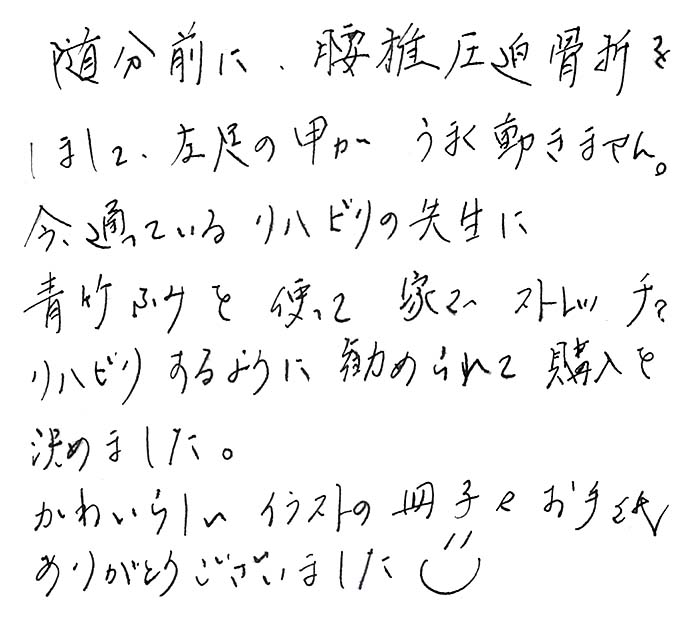 随分前に、腰椎圧迫骨折を
しまして、左足の甲が うまく動きません。
今、通っているリハビリの先生に
青竹ふみを使って家でストレッチや
リハビリするように勧められて購入を
決めました。
かわいらしいイラストの冊子とお手紙
ありがとうございました